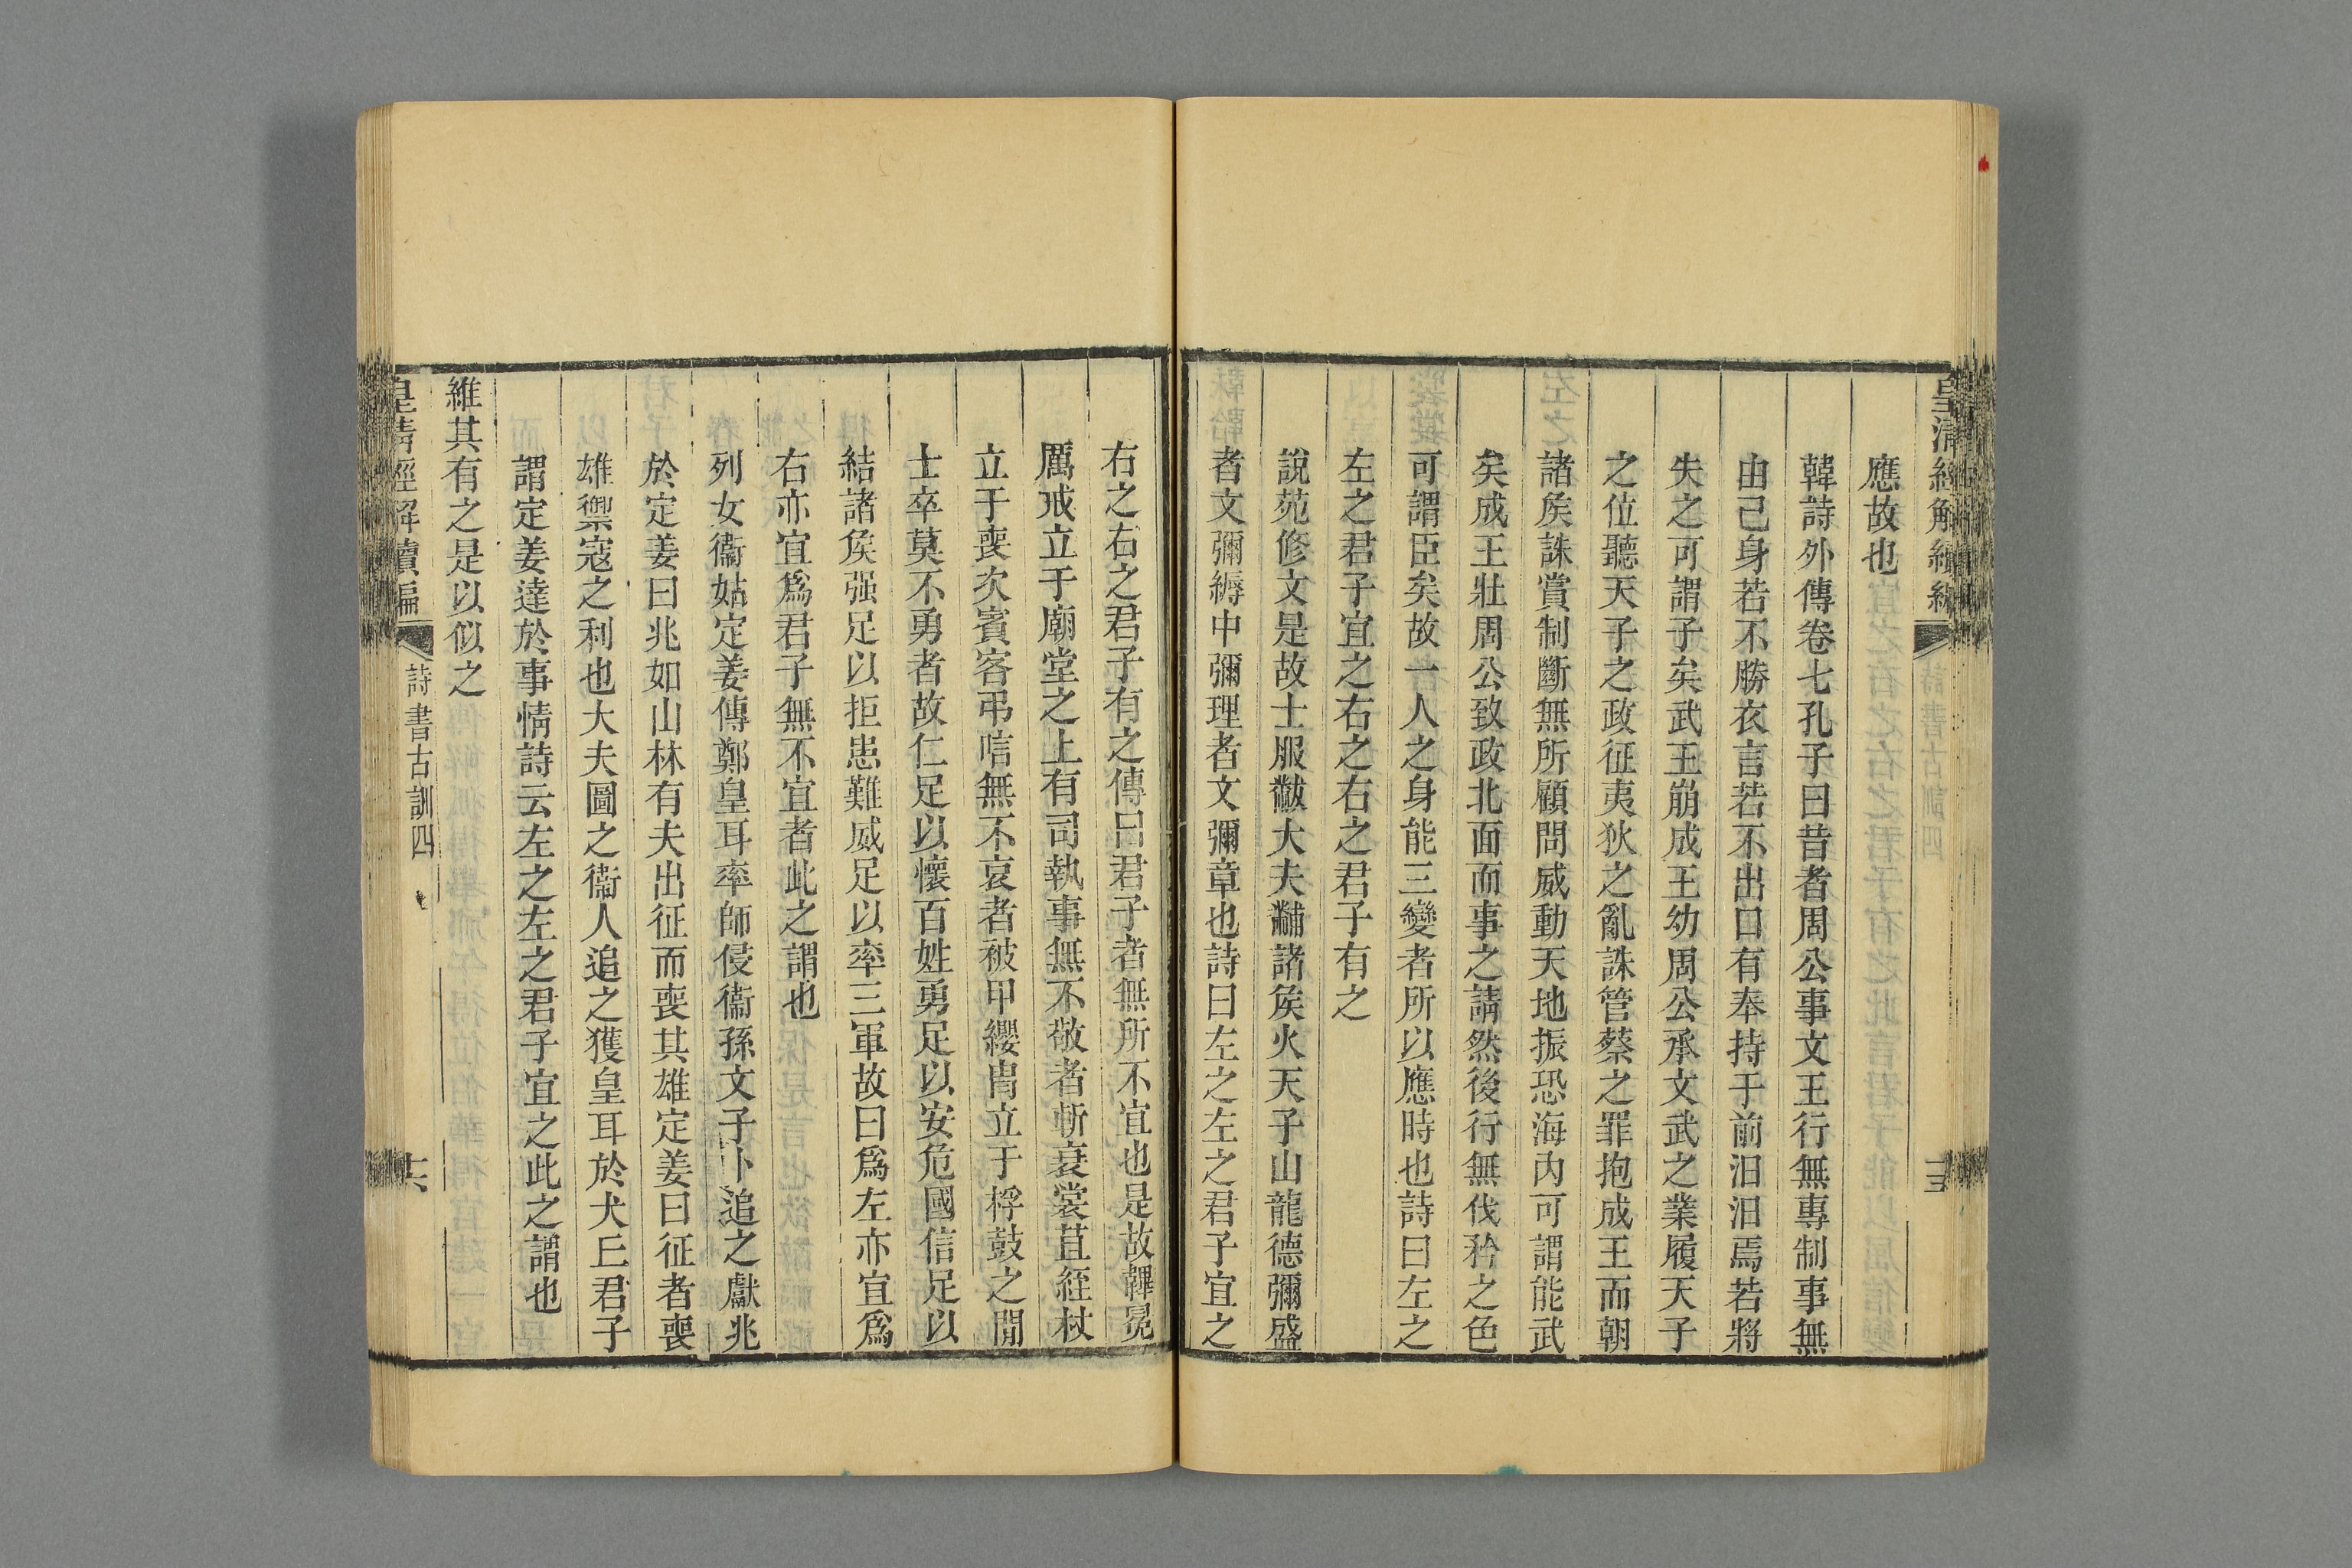 皇清經解續編
詩書古訓四
十五
應故也
韓詩外傳卷七孔子曰昔者周公事文王行無專制事無
由己身若不勝衣言若不出口有奉持于前洎洎焉若將
失之可謂子矣武王崩成王幼周公承文武之業履天子
之位聽天子之政征夷狄之亂誅管蔡之罪抱成王而朝
諸矦誅賞制斷無所顧問威動天地振恐海內可謂能武
矣成王壯周公致政北面而事之請然後行無伐矜之色
可謂臣矣故一人之身能三變者所以應時也詩曰左之
左之君子宜之右之右之君子有之
說苑修文是故士服黻大夫黼諸矦火天子山龍德彌盛
者文彌縟中彌理者文彌章也詩曰左之左之君子宜之
右之右之君子有之傳曰君子者無所不宜也是故韠冕
厲戒立于廟堂之上有司執事無不敬者斬衰裳苴絰杖
立于喪次賓客弔唁無不哀者被甲纓冑立于桴鼓之閒
士卒莫不勇者故仁足以懷百姓勇足以安危國信足以
結諸矦强足以拒患難威足以率三軍故曰爲左亦宜爲
右亦宜爲君子無不宜者此之謂也
列女衞姑定姜傳鄭皇耳率師侵衞孫文子卜追之獻兆
於定姜曰兆如山林有夫出征而喪其雄定姜曰征者喪
雄禦寇之利也大夫圖之衞人追之獲皇耳於犬丘君子
謂定姜達於事情詩云左之左之君子宜之此之謂也
維其有之是以似之
皇清經解續編
詩書古訓四
十六